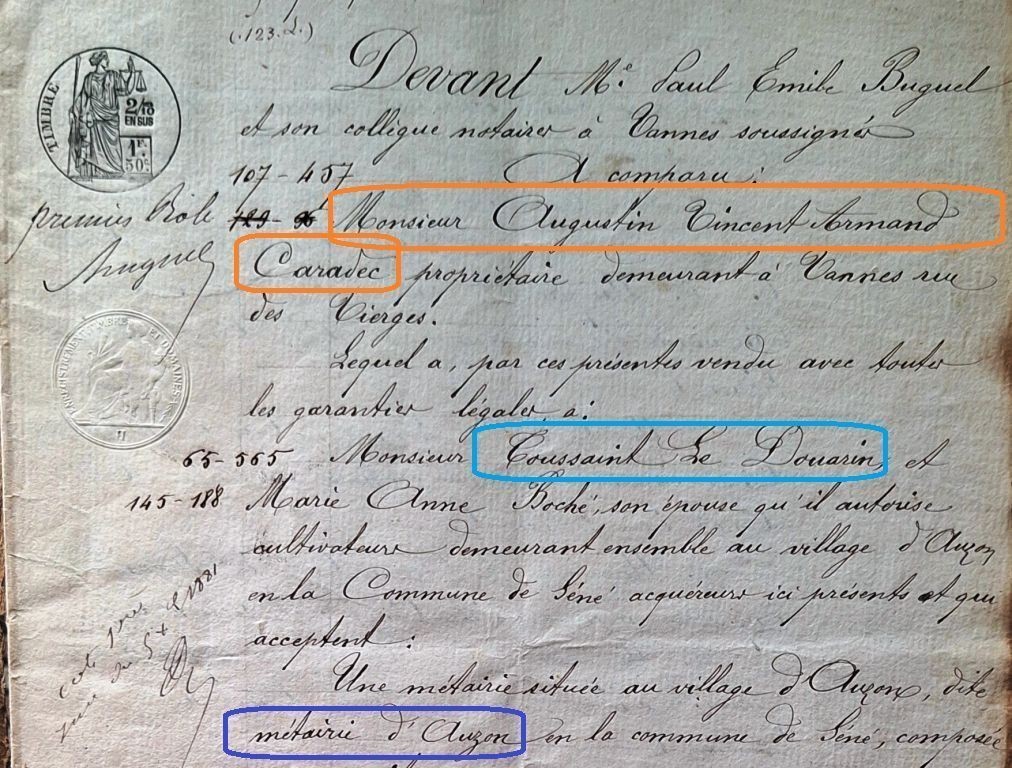 (.123.L.)
Devant Me Paul Emile Buguel
et son collègue notaires à Vannes soussignés
107 - 457 A comparu :
TIMBRE
2/10
EN SUS
1F.
50c.
premier Rôle
Buguel
Monsieur Augustin Vincent Armand
Caradec propriétaire demeurant à Vannes rue
des Vierges.
Lequel a, par ces présentes vendu avec toutes
les garanties légales, à :
65 - 565 Monsieur Toussaint Le Douarin, et
145 - 188 Marie Anne Boché, son épouse qu'il autorise
cultivateurs demeurant ensemble au village d'Auzon
en la Commune de Séné acquéreurs ici présents et qui
acceptent :
Une métairie située au village d'Auzon, dite
métairie d'Auzon en la commune de Séné, composée